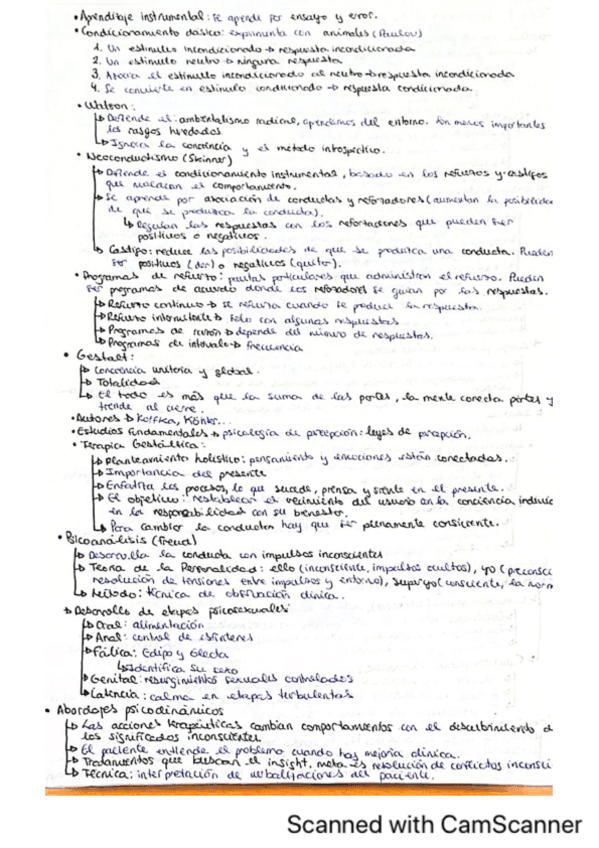 • Aprendizaje instrumental: se aprende por ensayo y error.
• Condicionamiento clásico: experimenta con animales (Paulov)
1. Un estímulo incondicionado → respuesta incondicionada
2. Un estímulo neutro → ninguna respuesta
3. Asocia el estímulo incondicionado al neutro → respuesta incondicionada
4. Se convierte en estímulo condicionado → respuesta condicionada.
• Watson:
↳ Defiende el: ambientalismo radical, aprendemos del entorno. Son menos importantes
los rasgos heredados.
↳ Ignora la conciencia y el método introspectivo.
• Neoconductismo (Skinner)
↳ Defiende el condicionamiento instrumental, basado en los refuerzos y castigos
que modifican el comportamiento.
↳ Se aprende por asociación de conductas y reforzadores (aumentan la posibilidad
de que se produzca la conducta).
↳ Regulan las respuestas con los reforzadores que pueden ser
positivos o negativos.
↳ Castigo: reduce las posibilidades de que se produzca una conducta. Pueden
ser positivos (dar) o negativos (quitar).
• Programas de refuerzo: pautas particulares que administran el refuerzo. Pueden
ser programas de acuerdo donde los reforzadores se guían por las respuestas.
↳ Refuerzo continuo → se refuerza cuando se produce la respuesta.
↳ Refuerzo intermitente → solo con algunas respuestas
↳ Programas de razón → depende del número de respuestas.
↳ Programas de intervalo → frecuencia
• Gestalt:
↳ Conciencia unitaria y global.
↳ Totalidad
↳ El todo es más que la suma de las partes, la mente conecta partes y
tiende al cierre.
• Autores → Koffka, Köhler...
• Estudios fundamentales → psicología de percepción: leyes de percepción.
• Terapia Gestáltica:
↳ Planteamiento holístico: pensamiento y emociones están conectadas.
↳ Importancia del presente
↳ Enfatiza los procesos, lo que sucede, piensa y siente en el presente.
↳ El objetivo: restablecer el crecimiento del usuario en la conciencia
en la responsabilidad con su bienestar.
↳ Para cambiar la conducta hay que ser plenamente consciente.
• Psicoanálisis (Freud)
↳ Desarrolla la conducta con impulsos inconscientes
↳ Teoría de la Personalidad: ello (inconsciente, impulsos ocultos), yo (preconsc
resolución de tensiones entre impulsos y entorno), superyo (consciente, la norm
↳ Método: técnica de observación clínica.
↳ Desarrollo de etapas psicosexuales
↳ Oral: alimentación
↳ Anal: control de esfínteres
↳ Fálica: Edipo y Electra
↳ Identifica su sexo
↳ Genital: resurgimientos sexuales controlados
↳ Latencia: calma en etapas turbulentas
• Abordajes psicodinámicos
↳ Las acciones terapéuticas cambian comportamientos con el descubrimiento d
los significados inconscientes.
↳ El paciente entiende el problema cuando hay mejoría clínica.
↳ Tratamientos que buscan el insight, meta es resolución de conflictos inconsci
↳ Técnica: interpretación de verbalizaciones del paciente.
Scanned with CamScanner